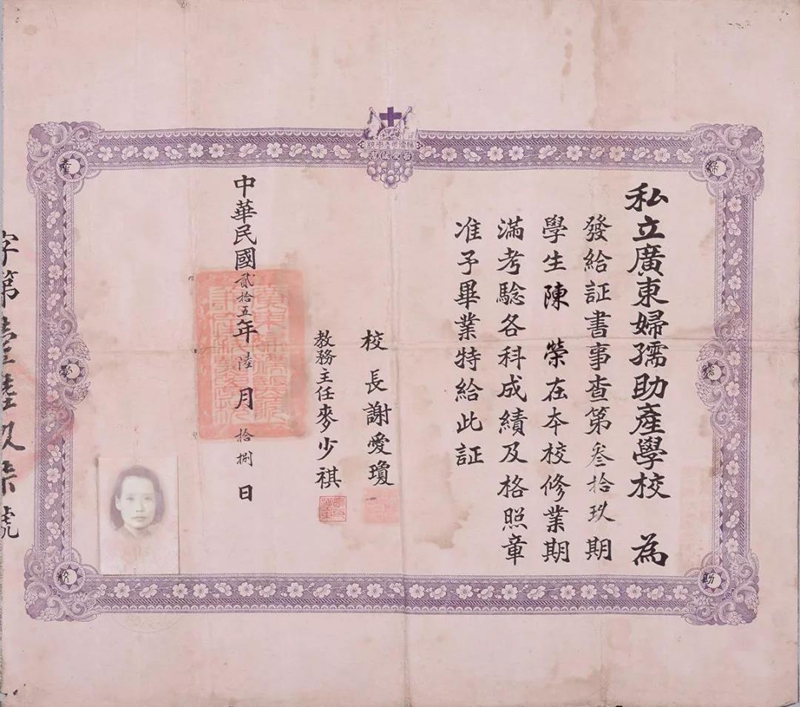 私立廣東婦孺助產學校 為
發給証書事查第叁拾玖期
學生陳 榮在本校修業期
滿考驗各科成績及格照章
准予畢業特給此証
校長謝愛瓊
教務主任麥少祺
中華民國貳拾五年陸月拾捌日
字第壹陸玖柒號